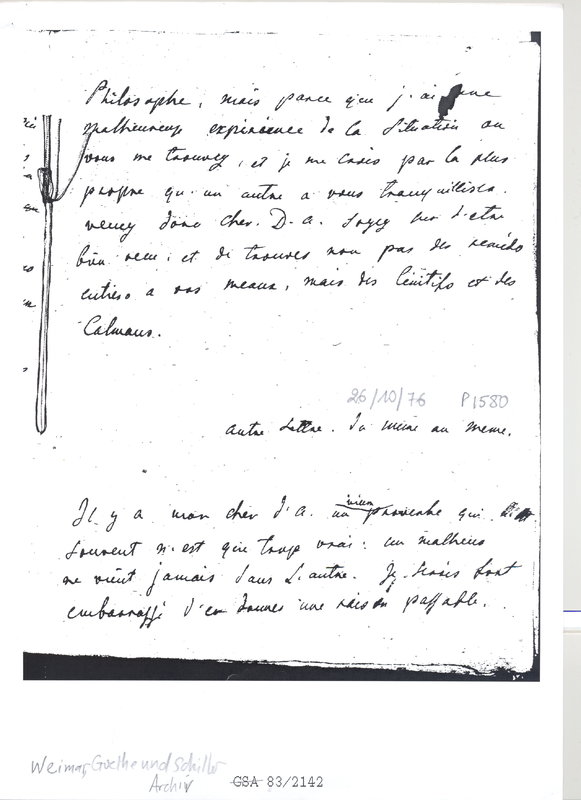 Philosophe, mais parce que j'ai une
malheureuse expérience de la Situation ou
vous me trouvez, et je me crois par la plus
propre qu'un autre a vous tranquilliser.
venez donc cher. D. a. soyez sur d'etre
bien recu, et de trouver non pas des remèds
entiers a vos meaux, mais des lénitifs et des
Calmans.
26/10/76 P1580
autre Lettre. du meme au meme.
Il y a mon cher d'a. un vieux proverbe qui dit
souvent n'est que trop vrai: un malheur
ne vient jamais sans L'autre. Je serois fort
embarrassé d'en donner une raison passable.
Weimar, Goethe und Schiller
Archiv
GSA 83/2142